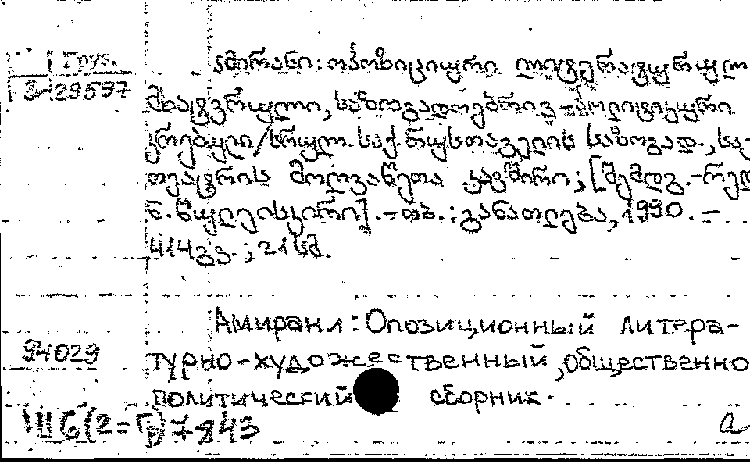 Груз.
2-29597
ამირანი: ოპოზიციური ლიტერატურულ
მხატვრული, საზოგადოებრივ-პოლიტიკური
კრებული/სრულ. საქ. რუსთაველის საზოგად., საქ.
თეატრის მოღვაწეთა კავშირი; [შემდგ.-რედ
ნ. წულეისკირი]. - თბ.: განათლება, 1990. -
414გვ.; 21სმ.
Амирани: Опозиционный литера-
94029
турно-художественный, общественно
политический сборник.
Ш6(2=Гр)7-843
а